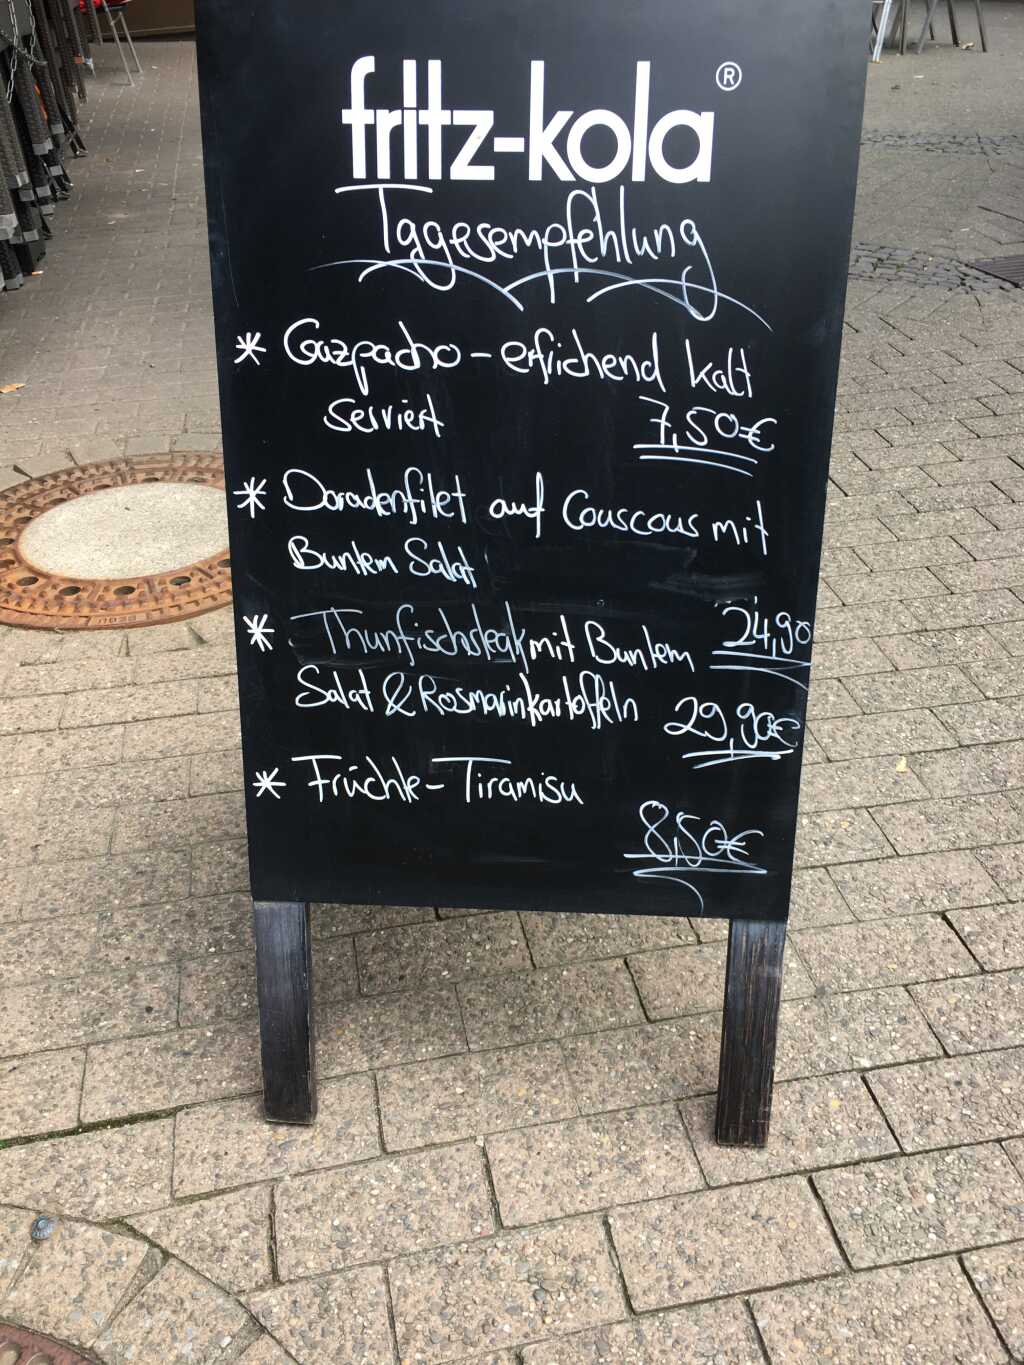 fritz-kola®
Tagesempfehlung
* Gazpacho - erfrichend kalt
serviert 7,50€
* Doradenfilet auf Couscous mit
Buntem Salat
24,90
* Thunfischsteak mit Buntem
Salat & Rosmarinkartoffeln 29,90€
* Früchte-Tiramisu
8,50€